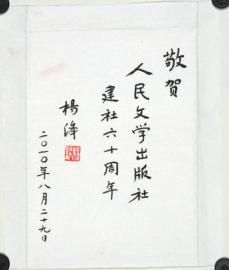 敬贺
人民文学出版社
建社六十周年
杨绛
二〇一〇年八月二十九日